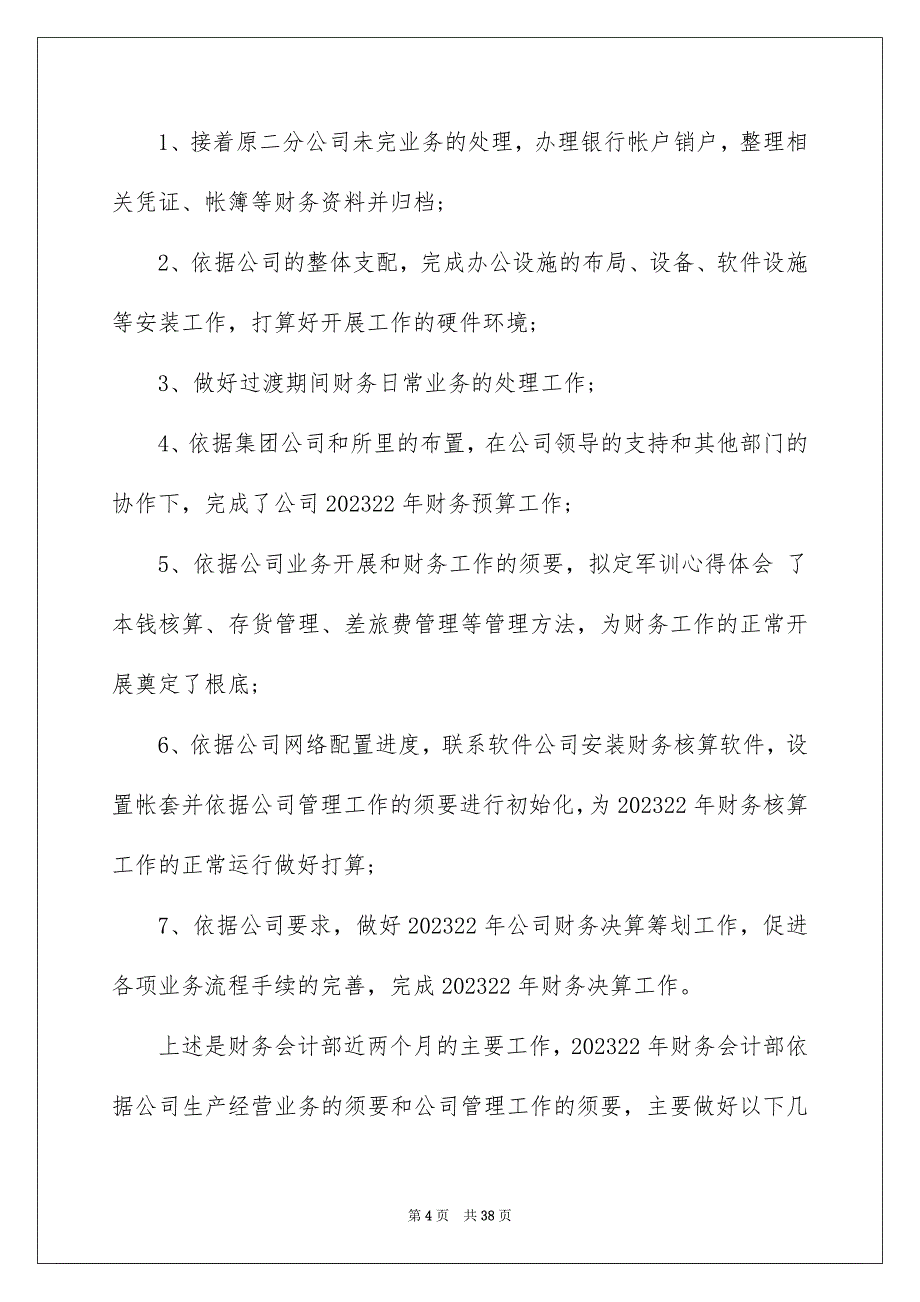 1、接着原二分公司未完业务的处理，办理银行帐户销户，整理相
关凭证、帐簿等财务资料并归档;
2、依据公司的整体支配，完成办公设施的布局、设备、软件设施
等安装工作，打算好开展工作的硬件环境;
3、做好过渡期间财务日常业务的处理工作;
4、依据集团公司和所里的布置，在公司领导的支持和其他部门的
协作下，完成了公司 202322 年财务预算工作;
5、依据公司业务开展和财务工作的须要，拟定军训心得体会 了
本钱核算、存货管理、差旅费管理等管理方法，为财务工作的正常开
展奠定了根底;
6、依据公司网络配置进度，联系软件公司安装财务核算软件，设
置帐套并依据公司管理工作的须要进行初始化，为 202322 年财务核算
工作的正常运行做好打算;
7、依据公司要求，做好 202322 年公司财务决算筹划工作，促进
各项业务流程手续的完善，完成 202322 年财务决算工作。
上述是财务会计部近两个月的主要工作，202322 年财务会计部依
据公司生产经营业务的须要和公司管理工作的须要，主要做好以下几
第 4 页 共 38 页